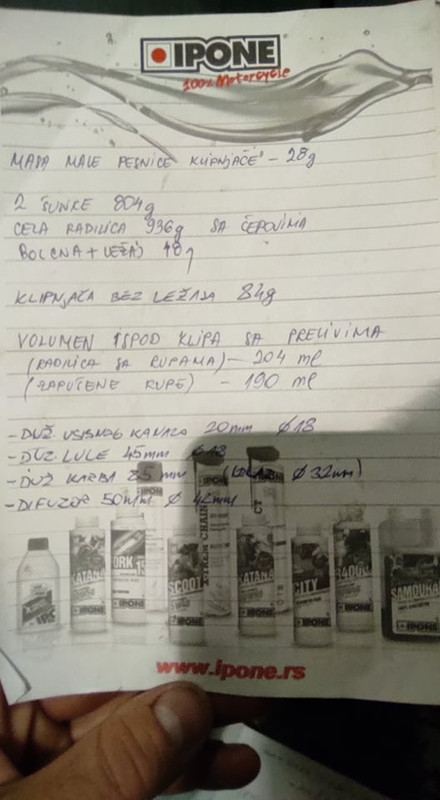 IPONE
100% Motorcycle
MASA MALE PESNICE KLIPNJAČE - 28g
2 ŠUNKE 804g
CELA RADILICA 936g SA ČEPOVIMA
BOLCNA + LEŽAJ 48g
KLIPNJAČA BEZ LEŽAJA 84g
VOLUMEN ISPOD KLIPA SA PRELIVIMA
(RADILICA SA RUPAMA) - 204 ml
(ZAPUŠENE RUPE) - 190 ml
- DUŽ. USISNOG KANALA 20mm Ø18
- DUŽ LULE 45mm Ø18
- DUŽ KARBA 85mm (ULAZ Ø32mm)
- DIFUZOR 50mm Ø 42mm
KATANA
FORK 15
SCOOT
KATANA
CITY
R4000
SAMOURAI
IPONE
IPONE
IPONE
IPONE
IPONE
IPONE
IPONE
www.ipone.rs